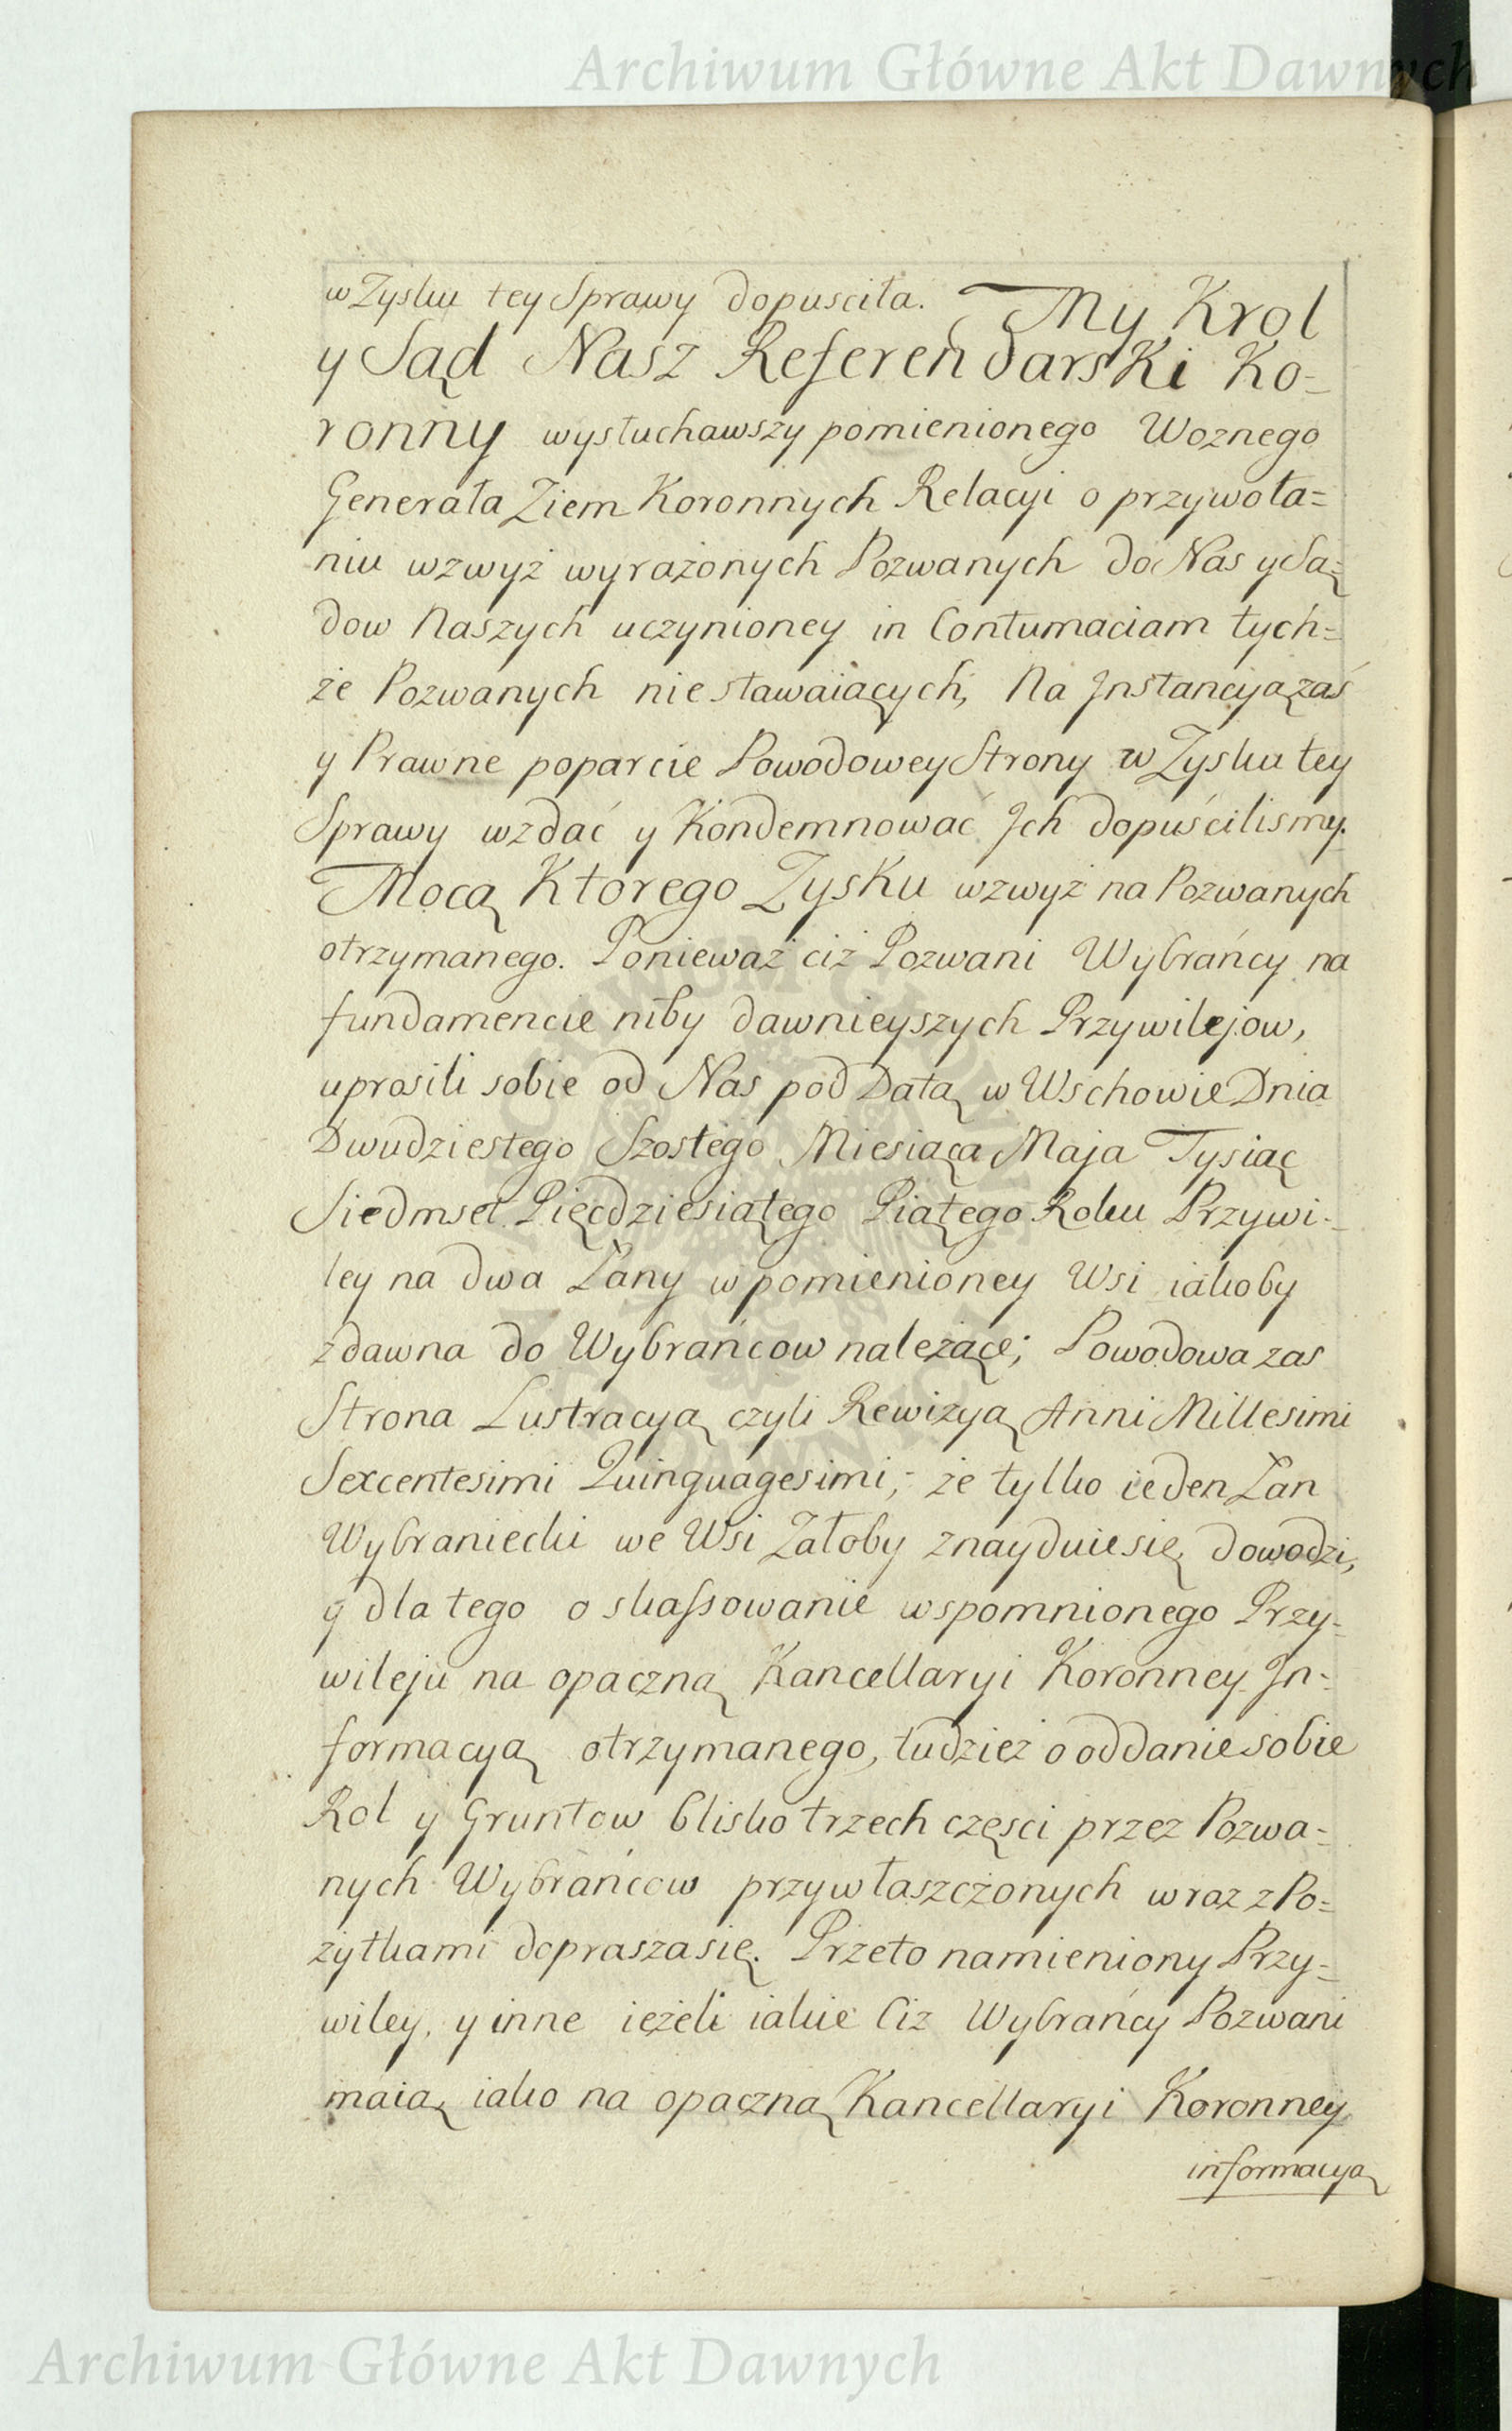 Archiwum Główne Akt Dawnych
w Zysku tey Sprawy dopusciła. My Krol
y Sąd Nasz Referendarski Ko=
ronny wysłuchawszy pomienionego Woznego
Generała Ziem Koronnych Relacyi o przywoła=
niu wzwyż wyrażonych Pozwanych do Nas y Są=
dow Naszych uczynioney in Contumaciam tych=
że Pozwanych nie stawaiących, Na Jnstancyą zaś
y Prawne poparcie Powodowey Strony w Zysku tey
Sprawy wzdać y Kondemnować Jch dopuścilismy.
Mocą Ktorego Zysku wzwyż na Pozwanych
otrzymanego. Ponieważ ciż Pozwani Wybrańcy na
fundamencie niby dawnieyszych Przywilejow,
uprosili sobie od Nas pod Datą w Wschowie Dnia
Dwudziestego Szostego Miesiąca Maja Tysiąc
Siedmset Pięcdziesiątego Piątego Roku Przywi=
ley na dwa Łany w pomienioney Wsi iakoby
zdawna do Wybrańcow należące; Powodowa zas
Strona Lustracyą czyli Rewizyą Anni Millesimi
Sexcentesimi Quinquagesimi, że tylko ieden Łan
Wybraniecki we Wsi Załoby znayduie się, dowodzi,
y dla tego o skassowanie wspomnionego Przy=
wileju na opaczną Kancellaryi Koronney Jn=
formacyą otrzymanego, tudzież o oddanie sobie
Rol y Gruntow blisko trzech części przez Pozwa=
nych Wybrańcow przywłaszczonych wraz z Po=
żytkami doprasza się. Przeto namieniony Przy=
wiley, y inne ieżeli iakie Ciż Wybrańcy Pozwani
maią, iako na opaczną Kancellaryi Koronney
informacyą
Archiwum Główne Akt Dawnych